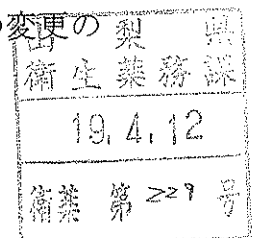 の変更の
山梨県
衛生薬務課
19.4.12
衛薬 第 229 号